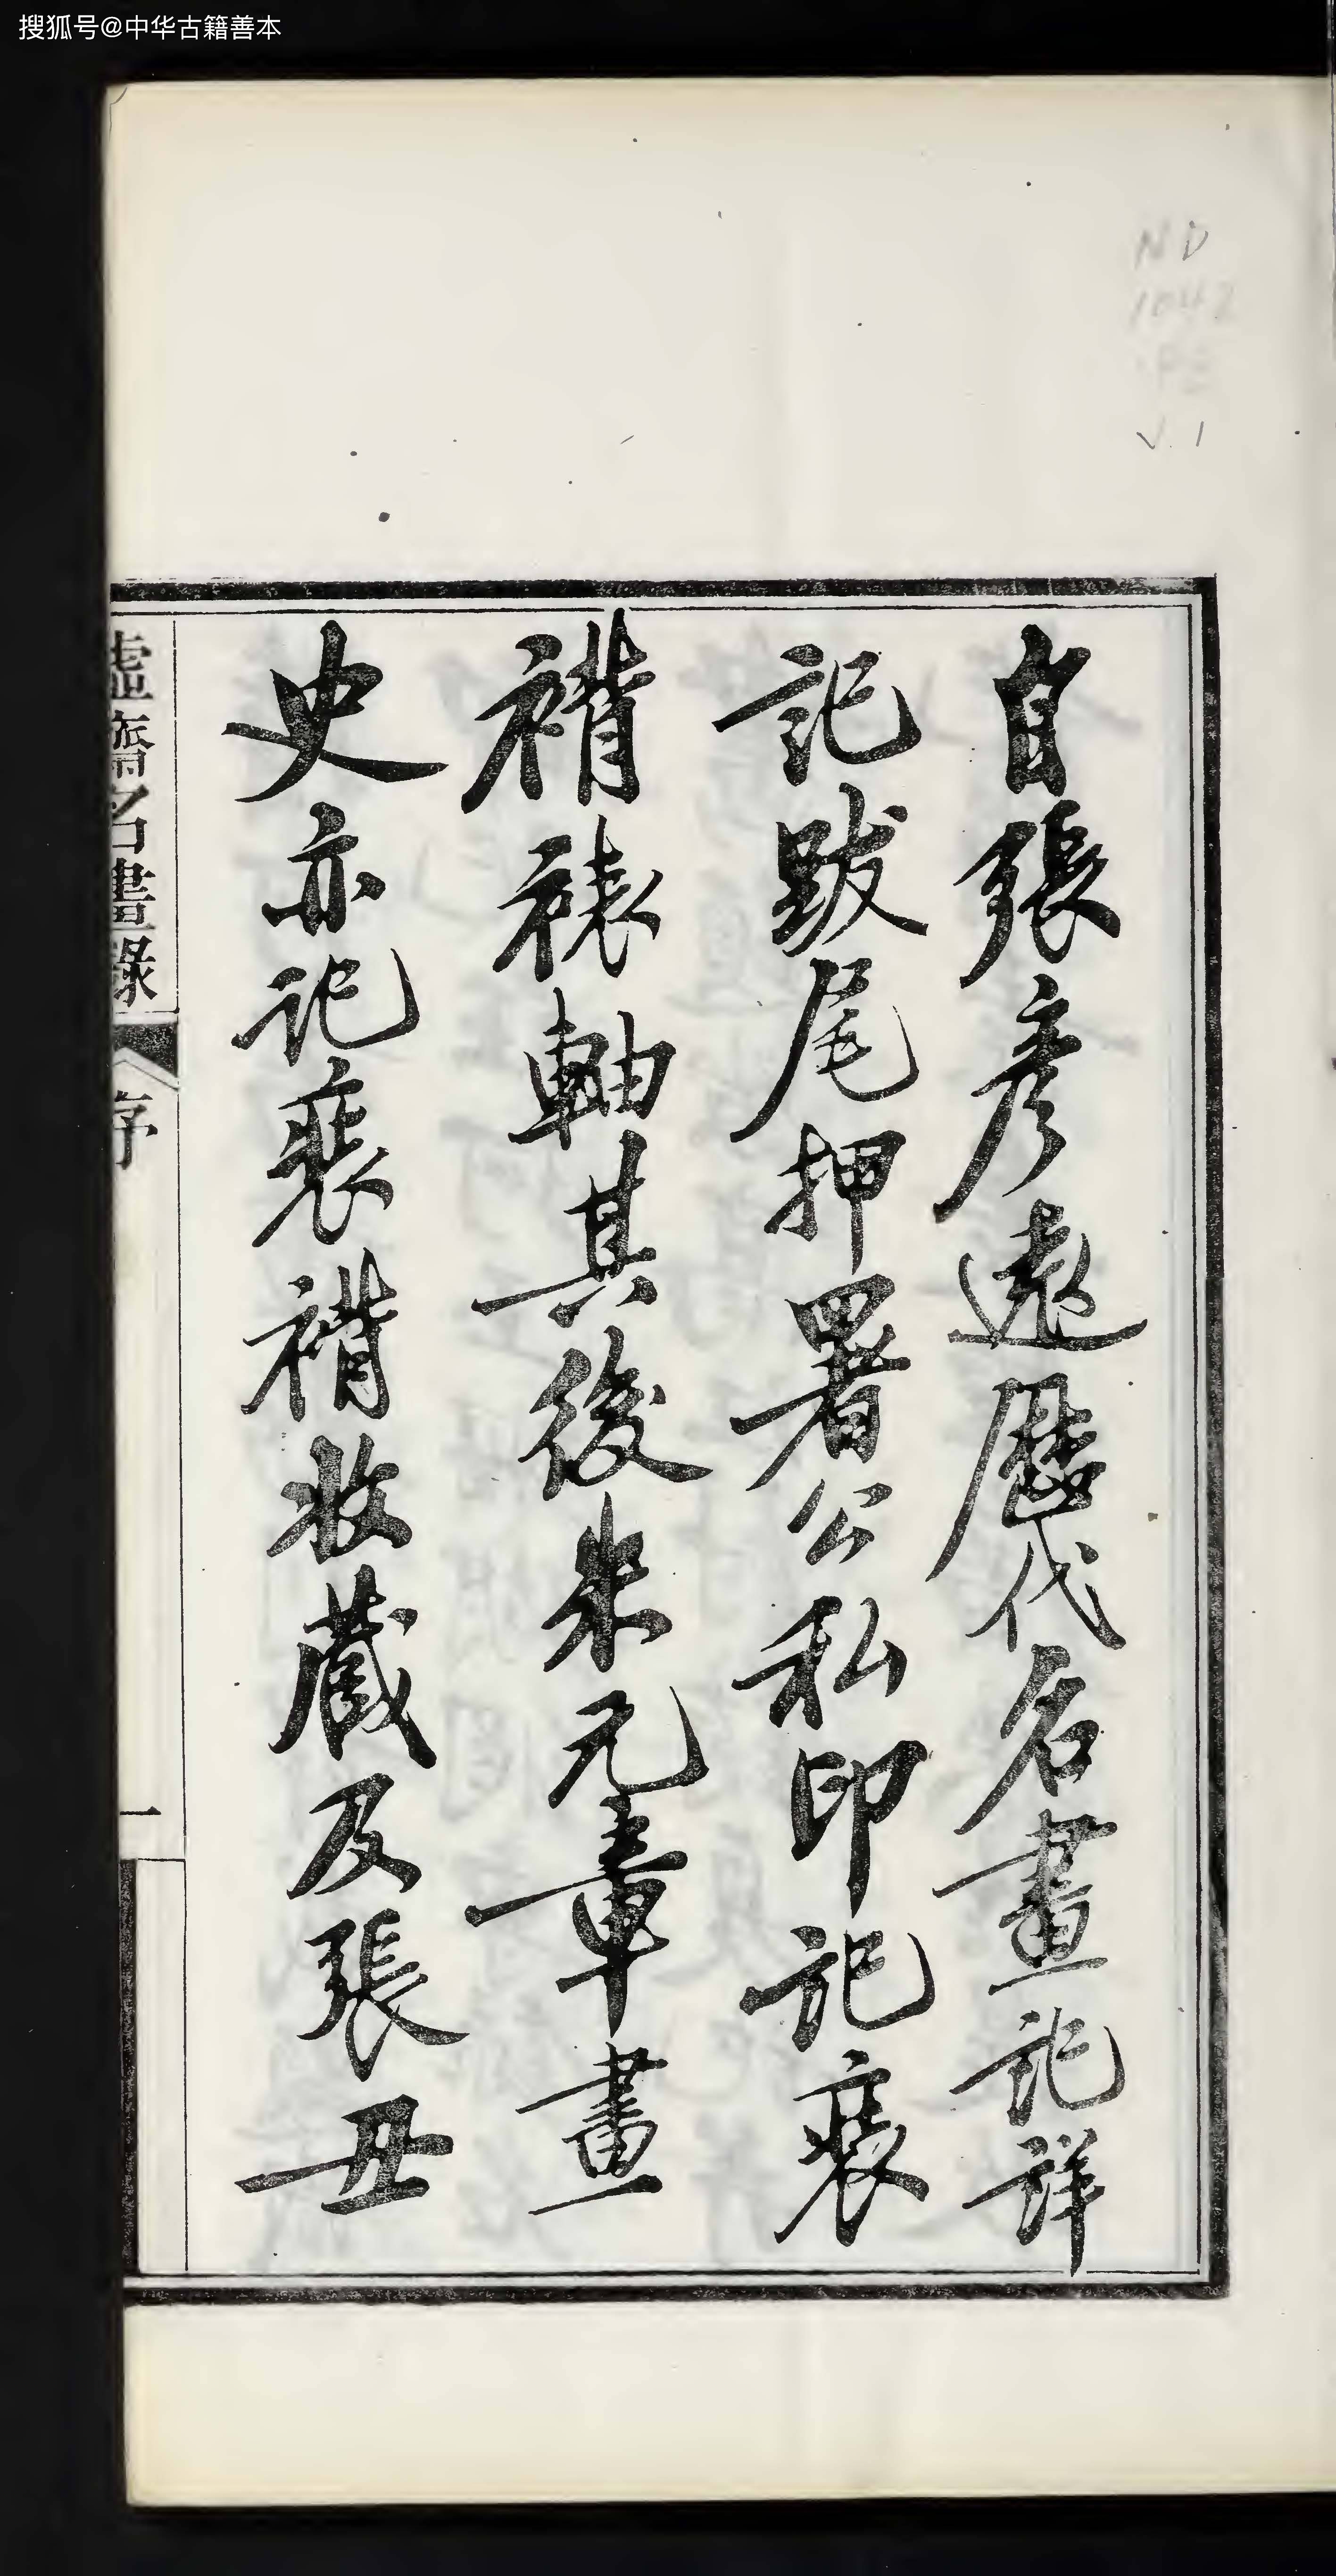 搜狐号@中华古籍善本
ND
1042
v.1
自張彥遠歷代名畫記詳
記跋尾押署公私印記裵
褙裱軸其後米元章畫
史亦記裵褙收藏及張丑
虛齋名畫錄
序
一